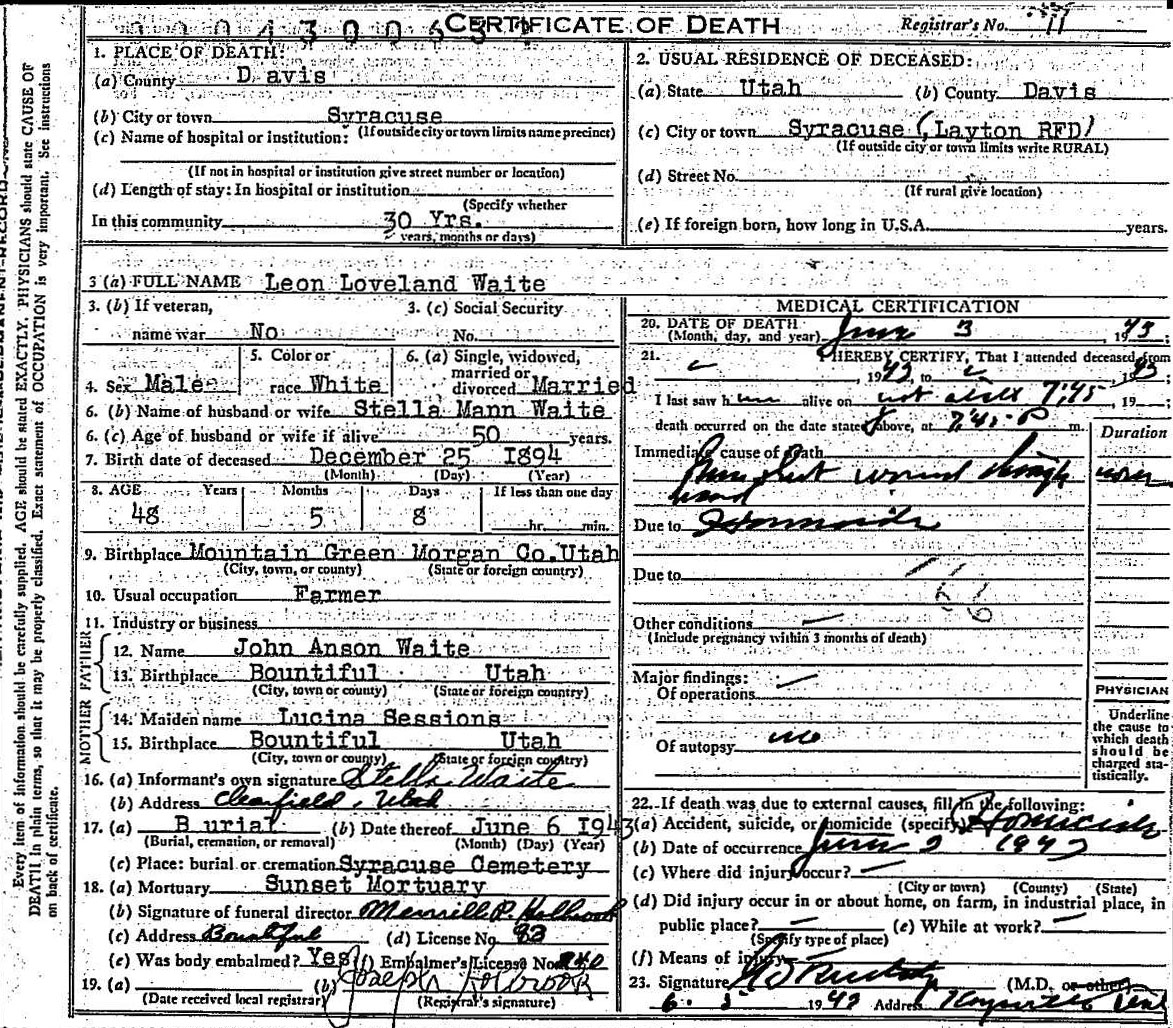 CERTIFICATE OF DEATH
Registrar's No. 11
1. PLACE OF DEATH:
(a) County Davis
(b) City or town Syracuse
(If outside city or town limits name precinct)
(c) Name of hospital or institution:
(If not in hospital or institution give street number or location)
(d) Length of stay: In hospital or institution
(Specify whether
In this community 30 Yrs.
years, months or days)
2. USUAL RESIDENCE OF DECEASED:
(a) State Utah (b) County Davis
(c) City or town Syracuse (Layton RFD)
(If outside city or town limits write RURAL)
(d) Street No.
(If rural give location)
(e) If foreign born, how long in U.S.A. years.
3 (a) FULL NAME Leon Loveland Waite
3. (b) If veteran, 3. (c) Social Security
name war No No.
4. Sex Male
5. Color or
race White
6. (a) Single, widowed,
married or
divorced Married
6. (b) Name of husband or wife Stella Mann Waite
6. (c) Age of husband or wife if alive 50 years.
7. Birth date of deceased December 25 1894
(Month) (Day) (Year)
8. AGE Years Months Days If less than one day
48 5 8 hr. min.
9. Birthplace Mountain Green Morgan Co. Utah
(City, town, or county) (State or foreign country)
10. Usual occupation Farmer
11. Industry or business
FATHER
12. Name John Anson Waite
13. Birthplace Bountiful Utah
(City, town or county) (State or foreign country)
MOTHER
14. Maiden name Lucina Sessions
15. Birthplace Bountiful Utah
(City, town or county) (State or foreign country)
16. (a) Informant's own signature Stella Waite
(b) Address Clearfield, Utah
17. (a) Burial (b) Date thereof June 6 1943
(Burial, cremation, or removal) (Month) (Day) (Year)
(c) Place: burial or cremation Syracuse Cemetery
18. (a) Mortuary Sunset Mortuary
(b) Signature of funeral director Merrill P. Holbrook
(c) Address Bountiful (d) License No. 83
(e) Was body embalmed? Yes (f) Embalmer's License No. 240
19. (a) (b) Joseph Holbrook
(Date received local registrar) (Registrar's signature)
MEDICAL CERTIFICATION
20. DATE OF DEATH June 3, 1943;
(Month, day, and year)
21. I HEREBY CERTIFY, That I attended deceased from
1943, to 1943;
I last saw him alive on not alive 7:45, 19 ;
death occurred on the date stated above, at 7:45 P m.
Duration
Immediate cause of death
Gun shot wound through
Due to Homicide
Due to
Other conditions
(Include pregnancy within 3 months of death)
Major findings:
Of operations
Of autopsy no
PHYSICIAN
Underline
the cause to
which death
should be
charged sta-
tistically.
22. If death was due to external causes, fill in the following:
(a) Accident, suicide, or homicide (specify) Homicide
(b) Date of occurrence June 3 1943
(c) Where did injury occur?
(City or town) (County) (State)
(d) Did injury occur in or about home, on farm, in industrial place, in
public place? (e) While at work?
(Specify type of place)
(f) Means of injury
23. Signature (M.D. or other)
6. 5 1943 Address Kaysville Utah
Every item of information should be carefully supplied. AGE should be stated EXACTLY. PHYSICIANS should state CAUSE OF
DEATH in plain terms, so that it may be properly classified. Exact statement of OCCUPATION is very important. See instructions
on back of certificate.